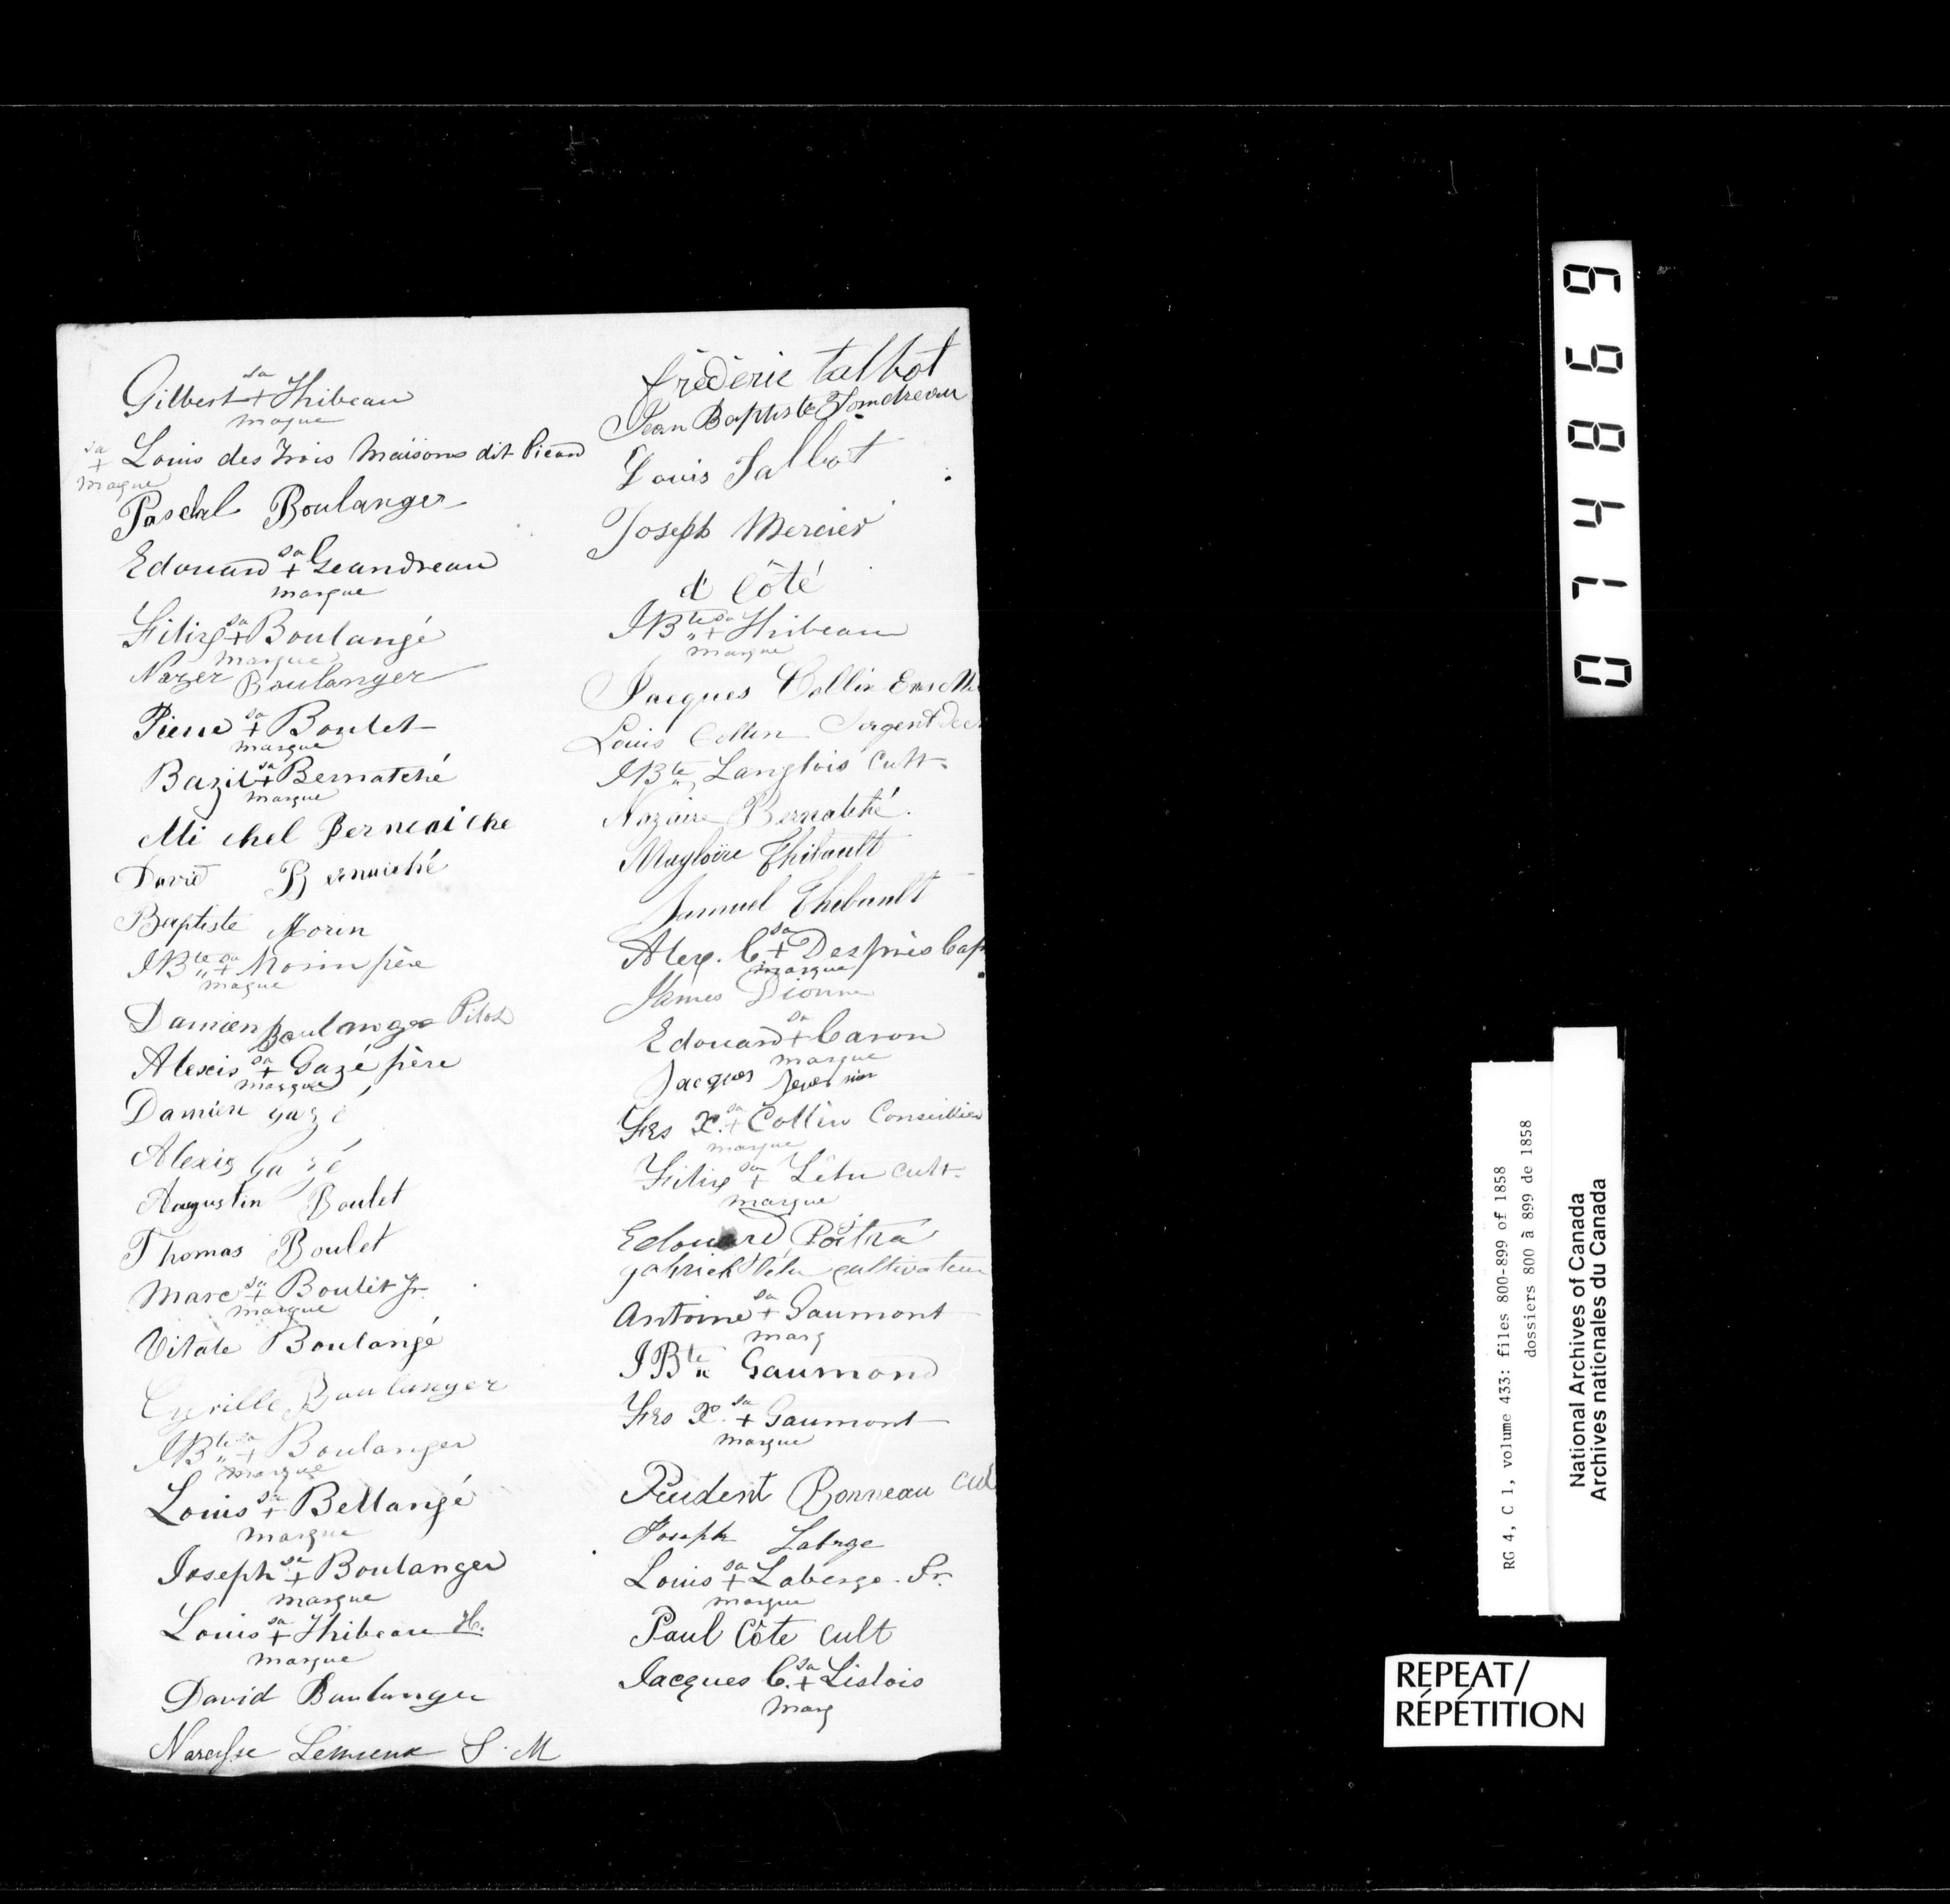 Gilbert sa + Thibeau
maque
sa + Louis des Trois Maisons dit Picard
maque
Paschal Boulanger
Edouard sa + Geandreau
marque
Filix sa + Boulangé
marque
Nazer Boulanger
Pierre sa + Boulet
marque
Bazil sa + Bernatché
marque
Michel Bernaiche
David Bernaiché
Baptiste Morin
JBte sa + Morin père
maque
Damien Boulanger Pilot
Alexis sa + Gazé père
marque
Damien gazé
Alexis Gazé
Augustin Boulet
Thomas Boulet
Marc sa + Boulet Jr.
marque
Vitale Boulangé
Cyrille Boulanger
JBte sa + Boulanger
marque
Louis sa + Bellangé
marque
Joseph sa + Boulanger
marque
Louis sa + Thibeau H.
marque
David Boulanger
Narcisse Lemieux S. M
frédéric talbot
Jean Baptiste
Louis Talbot
Joseph Mercier
d Côté
JBte sa + Thibeau
marque
Jacques Collin
Louis Collin Sergent de
JBte Langlois Cult.
Nazaire Bernatché.
Magloire Thibault
Samuel Thibault
Alex. C. sa + Desprès Cap
marque
James Dionne
Edouard sa + Caron
marque
Jacques
Frs X. sa + Collin Conseiller
marque
Filix sa + Lêtu cult.
marque
Edouard Pôitra
gabriel létu cultivateur
Antoine sa + Gaumont
marq
JBte Gaumond
Frs X. sa + Gaumont
marque
Prudent Bonneau cul
Joseph Labrge
Louis sa + Laberge Jr.
marque
Paul Côte cult
Jacques C. sa + Lislois
marq
014899
RG 4, C 1, volume 433: files 800-899 of 1858
dossiers 800 à 899 de 1858
National Archives of Canada
Archives nationales du Canada
REPEAT/
RÉPÉTITION